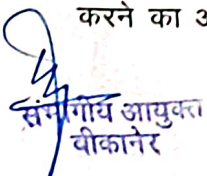 करने का
संभागीय आयुक्त
बीकानेर